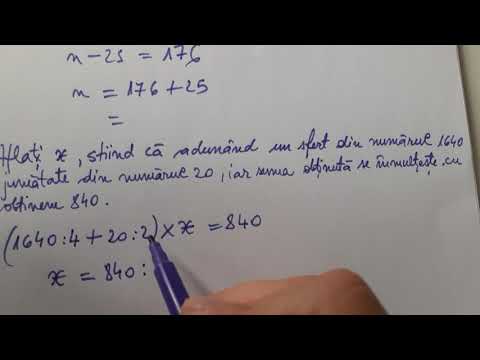 n - 25 = 176
n = 176 + 25
=
Aflați x, știind că adunând un sfert din numărul 1640
jumătate din numărul 20, iar suma obținută se înmulțește cu
obținem 840.
(1640 : 4 + 20 : 2) × x = 840
x = 840 :